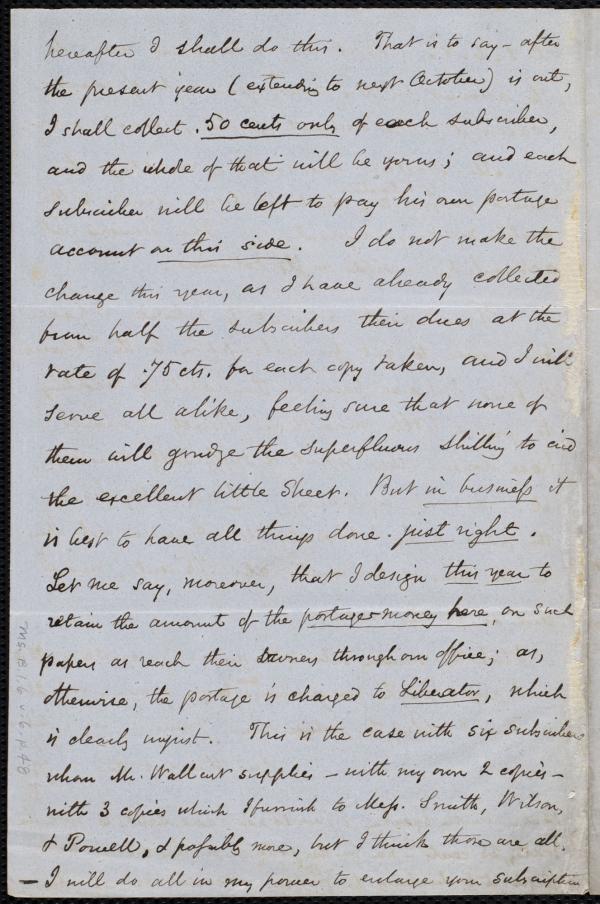 hereafter I shall do this. That is to say - after
the present year (extending to next October) is out,
I shall collect .50 cents only of each subscriber,
and the whole of that will be yours; and each
subscriber will be left to pay his own postage
account on this side. I do not make the
change this year, as I have already collected
from half the subscribers their dues at the
rate of .75 cts. for each copy taken, and I will
serve all alike, feeling sure that none of
them will grudge the superfluous shilling to aid
the excellent little Sheet. But in business it
is best to have all things done just right.
Let me say, moreover, that I design this year to
retain the amount of the postage-money here, on such
papers as reach their owners through our office; as,
otherwise, the postage is charged to Liberator, which
is clearly unjust. This is the case with six subscribers
whom Mr. Wallcut supplies - with my own 2 copies -
with 3 copies which I furnish to Mess. Smith, Wilson,
& Powell, & possibly more, but I think those are all.
- I will do all in my power to enlarge your subscription
Ms. B.1.6 v.6, p.48